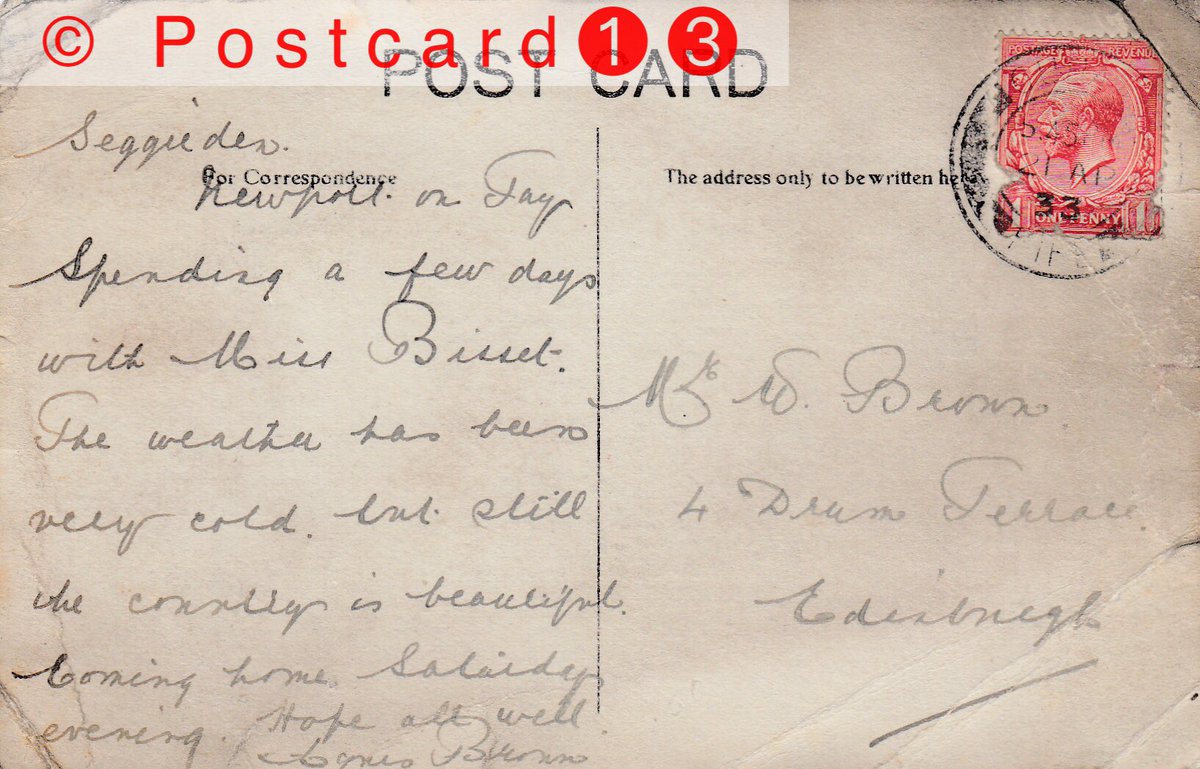 © Postcard13
POST CARD
Seggieden.
For Correspondence
Newport. on Tay
Spending a few days
with Miss Bisset.
The weather has been
very cold. but still
the country is beautiful.
Coming home Saturday
evening. Hope all well
Agnes Brown
The address only to be written he
POSTAGE REVENUE
ONE PENNY
21 AP
33
FIFE
Mr W. Brown
4 Drum Terrace.
Edinburgh